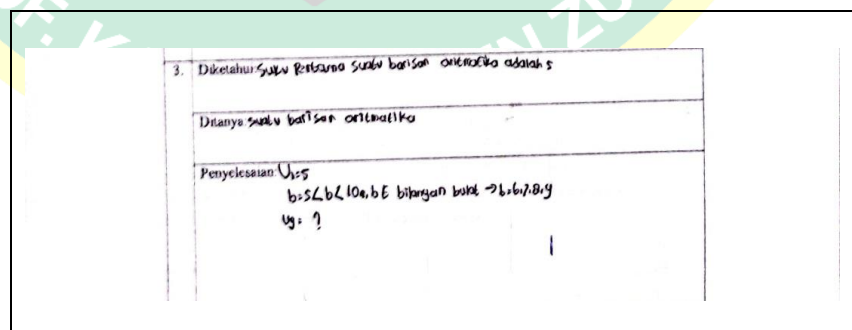 3. Diketahui: Suku Pertama suatu barisan aritmatika adalah 5
Ditanya: suatu barisan aritmatika
Penyelesaian: U₁=5
b=5<b<10, b ∈ bilangan bulat → b=6,7,8,9
U9= ?